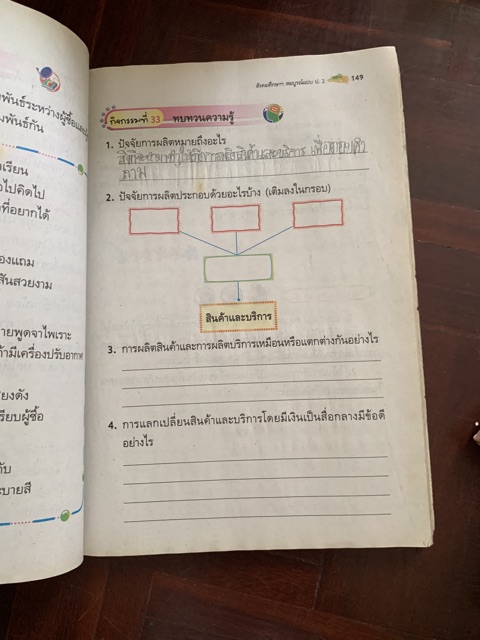 พันธ์ระหว่างผู้ซื้อและ
มพันธ์กัน
เรียน
อไปคิดไป
ที่อยากได้
องแถม
สันสวยงาม
ายพูดจาไพเราะ
ก้ามีเครื่องปรับอากาศ
สียงดัง
รียบผู้ซื้อ
กับ
ะบายสี
สังคมศึกษาฯ สมบูรณ์แบบ ป. 2
149
กิจกรรมที่ 33 ทบทวนความรู้
1. ปัจจัยการผลิตหมายถึงอะไร
2. ปัจจัยการผลิตประกอบด้วยอะไรบ้าง (เติมลงในกรอบ)
สินค้าและบริการ
3. การผลิตสินค้าและการผลิตบริการเหมือนหรือแตกต่างกันอย่างไร
4. การแลกเปลี่ยนสินค้าและบริการโดยมีเงินเป็นสื่อกลางมีข้อดี
อย่างไร